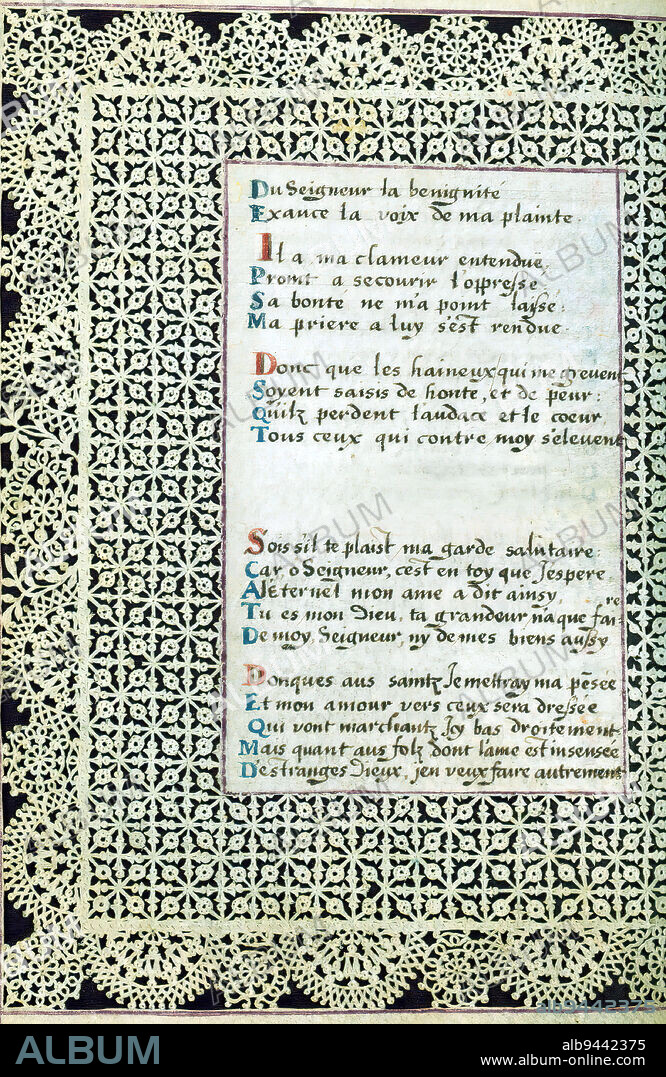 Du Seigneur la benignité
Exauce la voix de ma plainte.
Il a ma clameur entendue,
Promt a secourir l'oppressé
Sa bonté ne m'a point laissé:
Ma priere a luy s'est rendue.
Donc que les haineux qui me grevent
Soyent saisis de honte, et de peur:
Quilz perdent l'audace et le coeur,
Tous ceux qui contre moy s'elevent
Sois s'il te plaist ma garde salutaire:
Car, o Seigneur, c'est en toy que j'espere
A l'Eternel mon ame a dit ainsy,
Tu es mon Dieu, ta grandeur n'a que faire
De moy, Seigneur, ny de mes biens aussy
Donques aus saintz Je mettray ma pēsée
Et mon amour vers ceux sera dressée
Qui vont marchantz Jcy bas droitement
Mais quant aus folz dont l'ame est insensée
D'estranges Dieux, j'en veux faire autrement
ALBUM
alb9442375
ALBUM
alb9442375
www.album-online.com